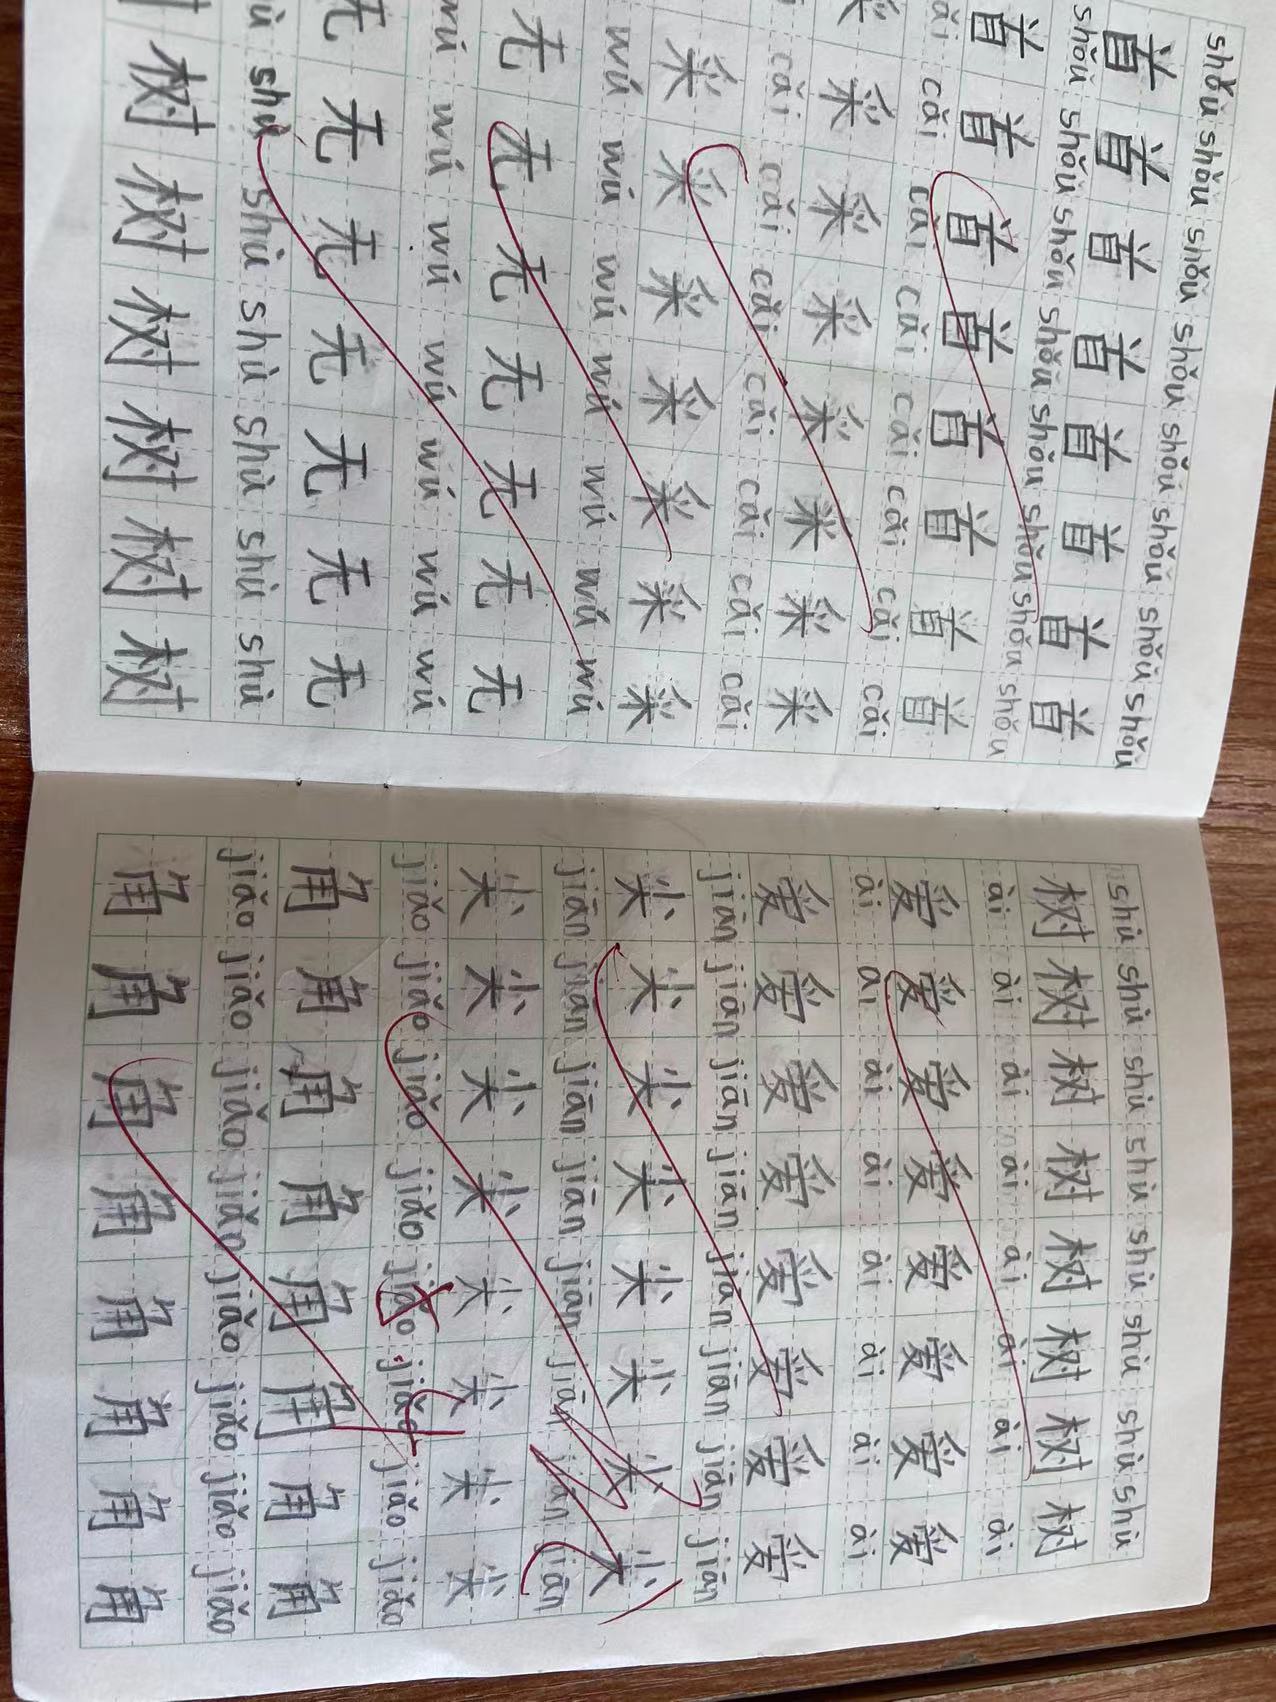 shǒu shǒu shǒu shǒu shǒu shǒu shǒu shǒu
首 首 首 首 首 首 首 首
shǒu shǒu shǒu shǒu shǒu shǒu shǒu shǒu
首 首 首 首 首 首 首 首
cǎi cǎi cǎi cǎi cǎi cǎi cǎi
采 采 采 采 采 采 采 采
cǎi cǎi cǎi cǎi cǎi cǎi cǎi
采 采 采 采 采 采 采
wú wú wú wú wú wú wú
无 无 无 无 无 无 无
wú wú wú wú wú wú wú
无 无 无 无 无 无 无
shù shù shù shù shù shù
树 树 树 树 树 树
shù shù shù shù shù shù shù shù
树 树 树 树 树 树 树 树
ài ài ài ài ài ài ài ài
爱 爱 爱 爱 爱 爱 爱 爱
ài ài ài ài ài ài ài ài
爱 爱 爱 爱 爱 爱 爱 爱
jiān jiān jiān jiān jiān jiān jiān jiān
尖 尖 尖 尖 尖 尖 尖 尖
jiān jiān jiān jiān jiān jiān jiān jiān
尖 尖 尖 尖 尖 尖 尖 尖
jiǎo jiǎo jiǎo jiǎo jiǎo jiǎo jiǎo jiǎo
角 角 角 角 角 角 角 角
jiǎo jiǎo jiǎo jiǎn jiǎo jiǎo jiǎo jiǎo
角 角 角 角 角 角 角 角